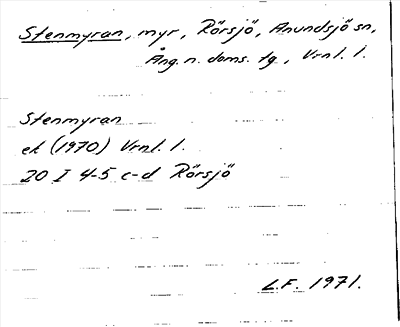 Stenmyran, myr, Rörsjö, Anundsjö sn,
Ång. n. doms. tg., Vrnl. l.
Stenmyran
ek (1970) Vrnl. l.
20 I 4-5 c-d Rörsjö
L.F. 1971.